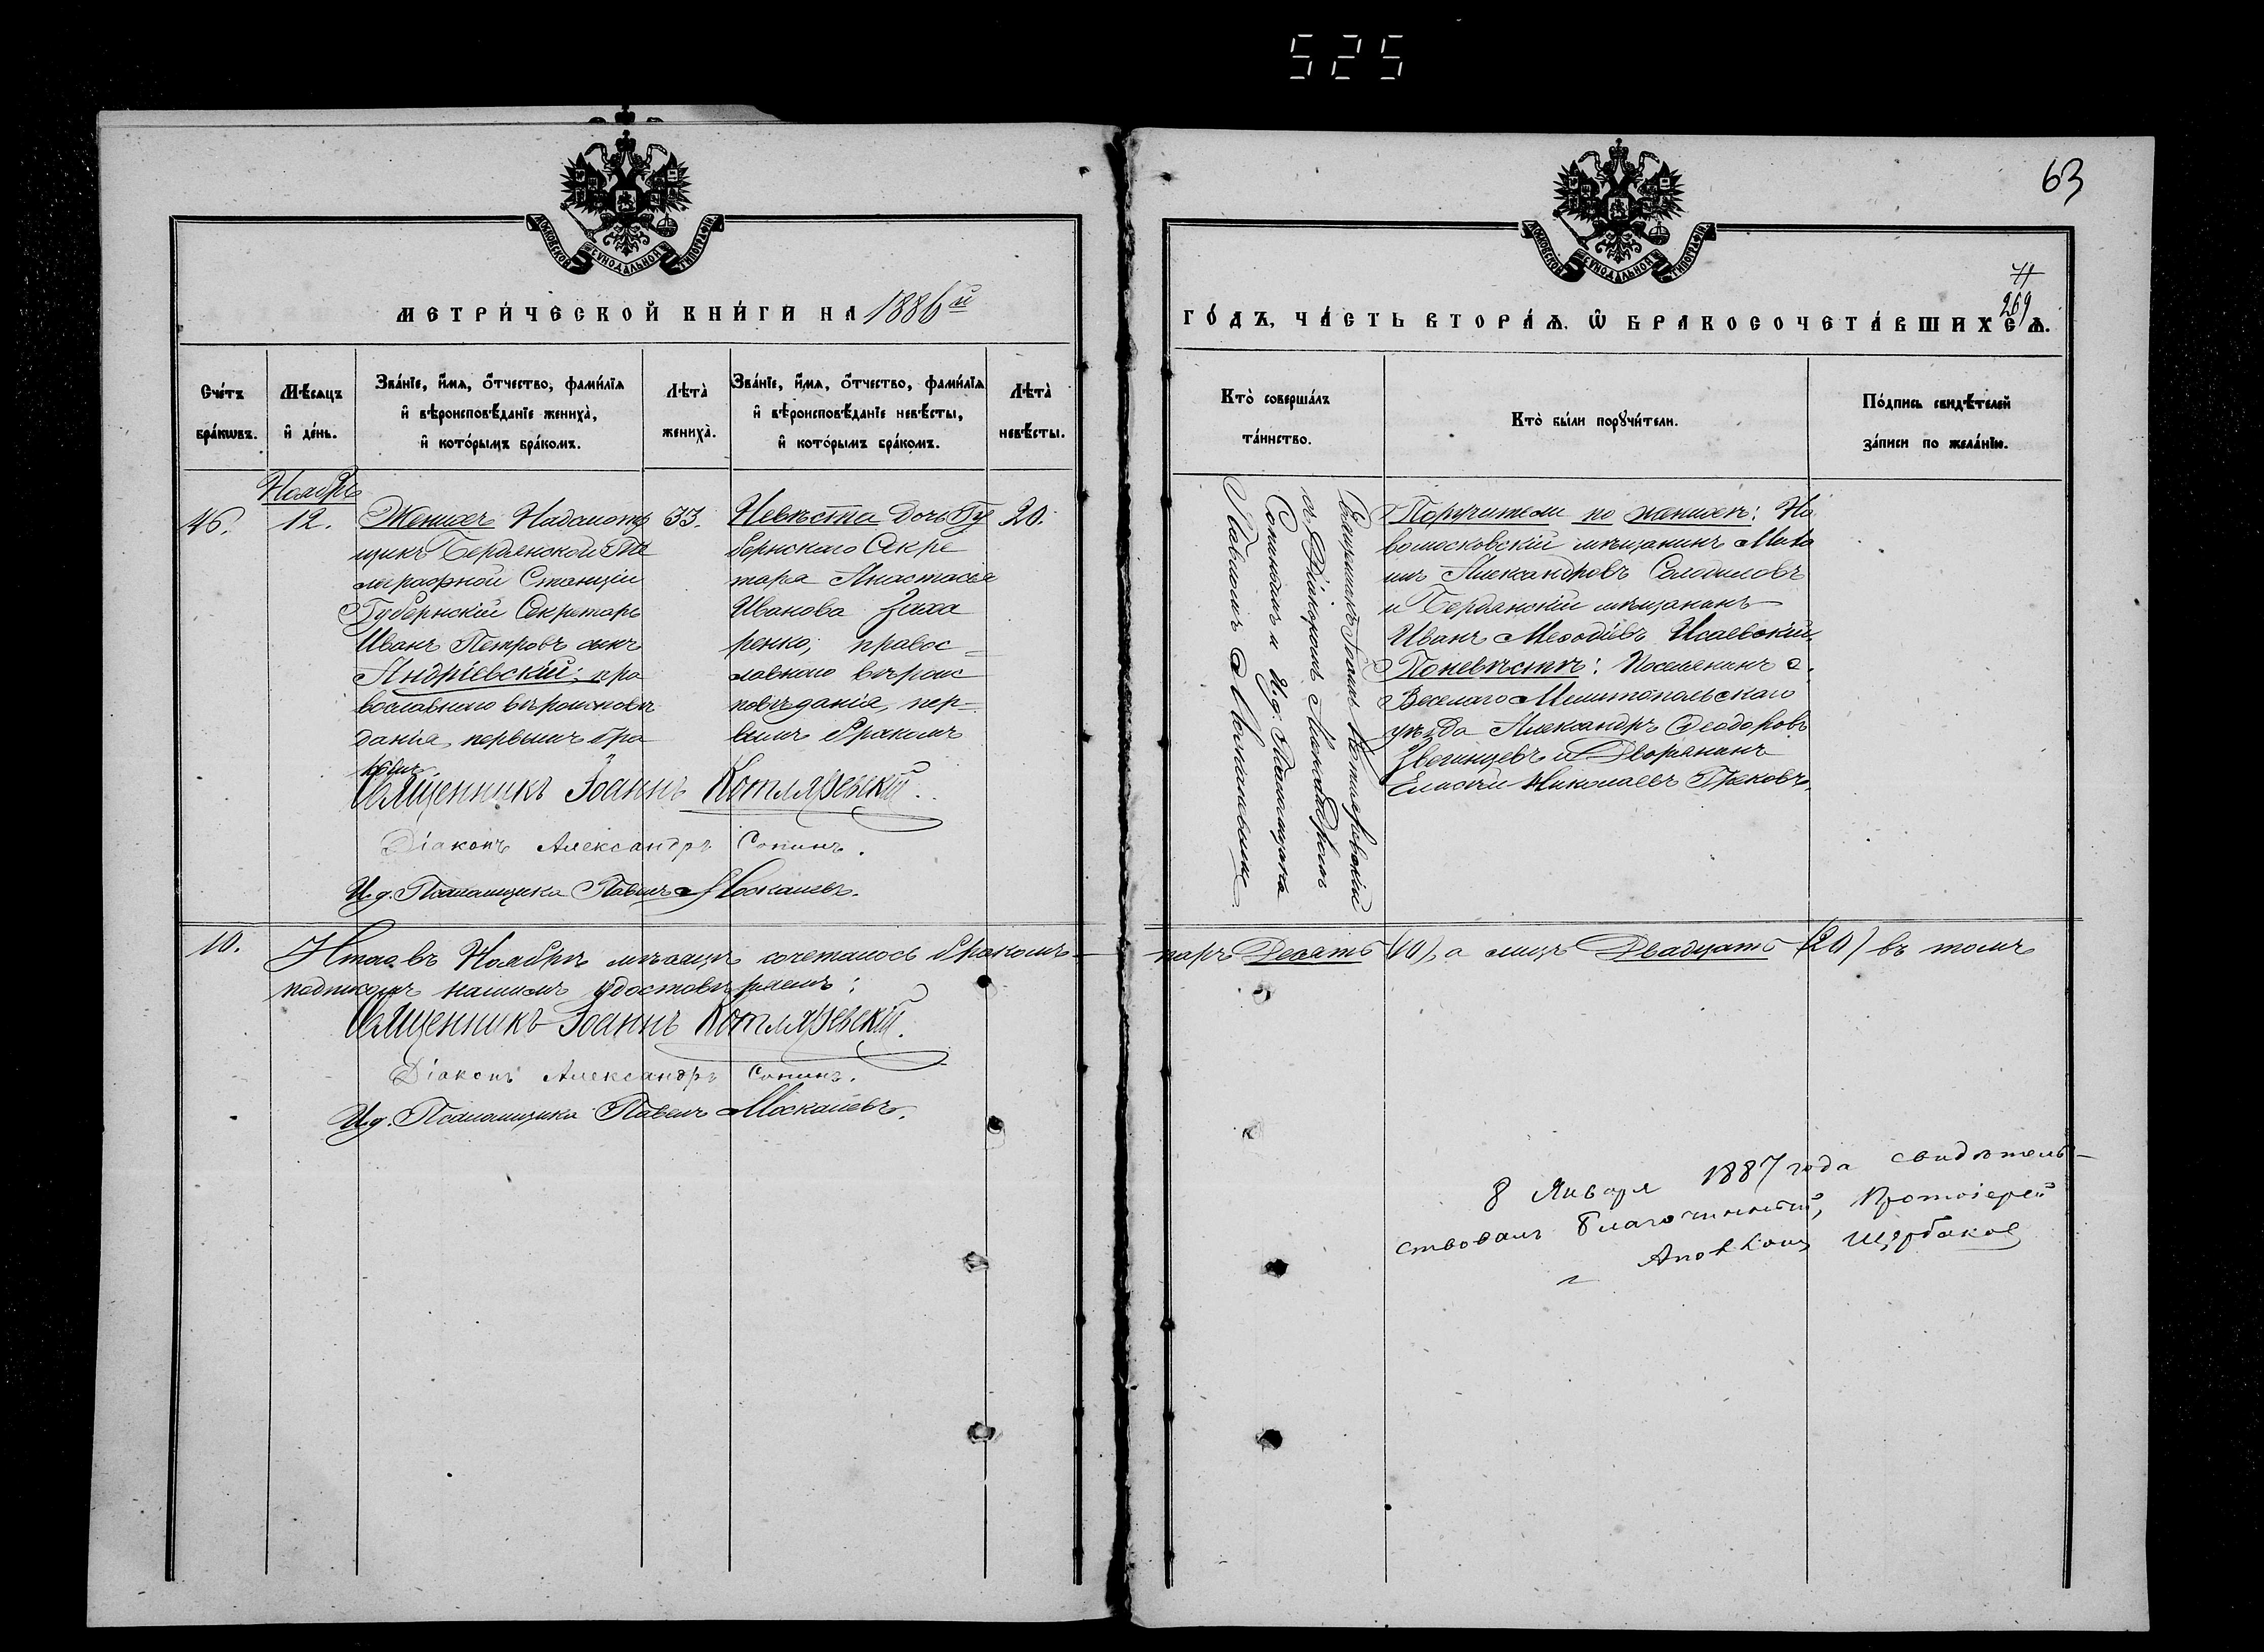 525
63
МОСКОВСКОЙ СѴНОДАЛЬНОЙ ТИПОГРАФІИ
МОСКОВСКОЙ СѴНОДАЛЬНОЙ ТИПОГРАФІИ
МЕТРИ́ЧЕСКОЙ КНИ́ГИ НА 1886й
Сче́тъ бра́кѡвъ.
Мѣ́сяцъ и҆ де́нь.
Зва́нїе, и҆́мя, ѻ҆́тчество, фами́лїя
и҆ вѣроисповѣ́данїе жениха̀,
и҆ кото́рымъ бра́комъ.
Лѣта̀ жениха̀.
Зва́нїе, и҆́мя, ѻ҆́тчество, фами́лїя
и҆ вѣроисповѣ́данїе невѣ́сты,
и҆ кото́рымъ бра́комъ.
Лѣта̀ невѣ́сты.
Ноябрь
46.
12.
Женихъ Надсмотр
щикъ Бердянской Те
леграфной Станціи
Губернскій Секретарь
Иванъ Петровъ сынъ
Андріевскій; пра
вославнаго вѣроисповѣ
данія, первымъ бра
комъ.
33.
Невѣста Дочь Гу
бернскаго Секре
таря Анастасія
Иванова Заха
ренко; правос=
лавнаго вѣроис
повѣданія, пер=
вымъ бракомъ
20.
Священникъ Іоаннъ Котляревскій.
Діаконъ Александръ Сопинъ.
И.д. Псаломщика Павелъ Москалевъ.
10.
Итого въ Ноябрѣ мѣсяцѣ сочеталось бракомъ
подписомъ нашимъ удостовѣряемъ:
Священникъ Іоаннъ Котляревскій.
Діаконъ Александръ Сопинъ.
И.д. Псаломщика Павелъ Москалевъ.
269
ГО́ДЪ, ЧА́СТЬ ВТОРА́Я, Ѽ БРАКОСОЧЕТА́ВШИХСЯ.
Кто̀ соверша́лъ
та́инство.
Кто̀ бы́ли порꙋчи́тели.
По́дпись свидѣ́телей
за́писи по жела́нїю.
Священникъ Іоаннъ Котляревскій
съ Діакономъ Александромъ
Сопинымъ и И.д. Псаломщика
Павломъ Москалевымъ
Поручители по женихѣ: Но
вомосковскій мѣщанинъ
Александровъ Солодиловъ
и Бердянскій мѣщанинъ
Иванъ Меѳодіевъ Исаевскій.
По невѣстѣ: поселянинъ с.
Веселаго Мелитопольскаго
уѣзда Александръ Ѳеодоровъ
Звегинцевъ и Дворянинъ
Николаевъ Грековъ.
паръ Десять (10), а лицъ Двадцать (20) въ томъ
8 Января 1887 года свидѣтель-
ствовалъ Благочинный, Протоіерей
Щербаковъ